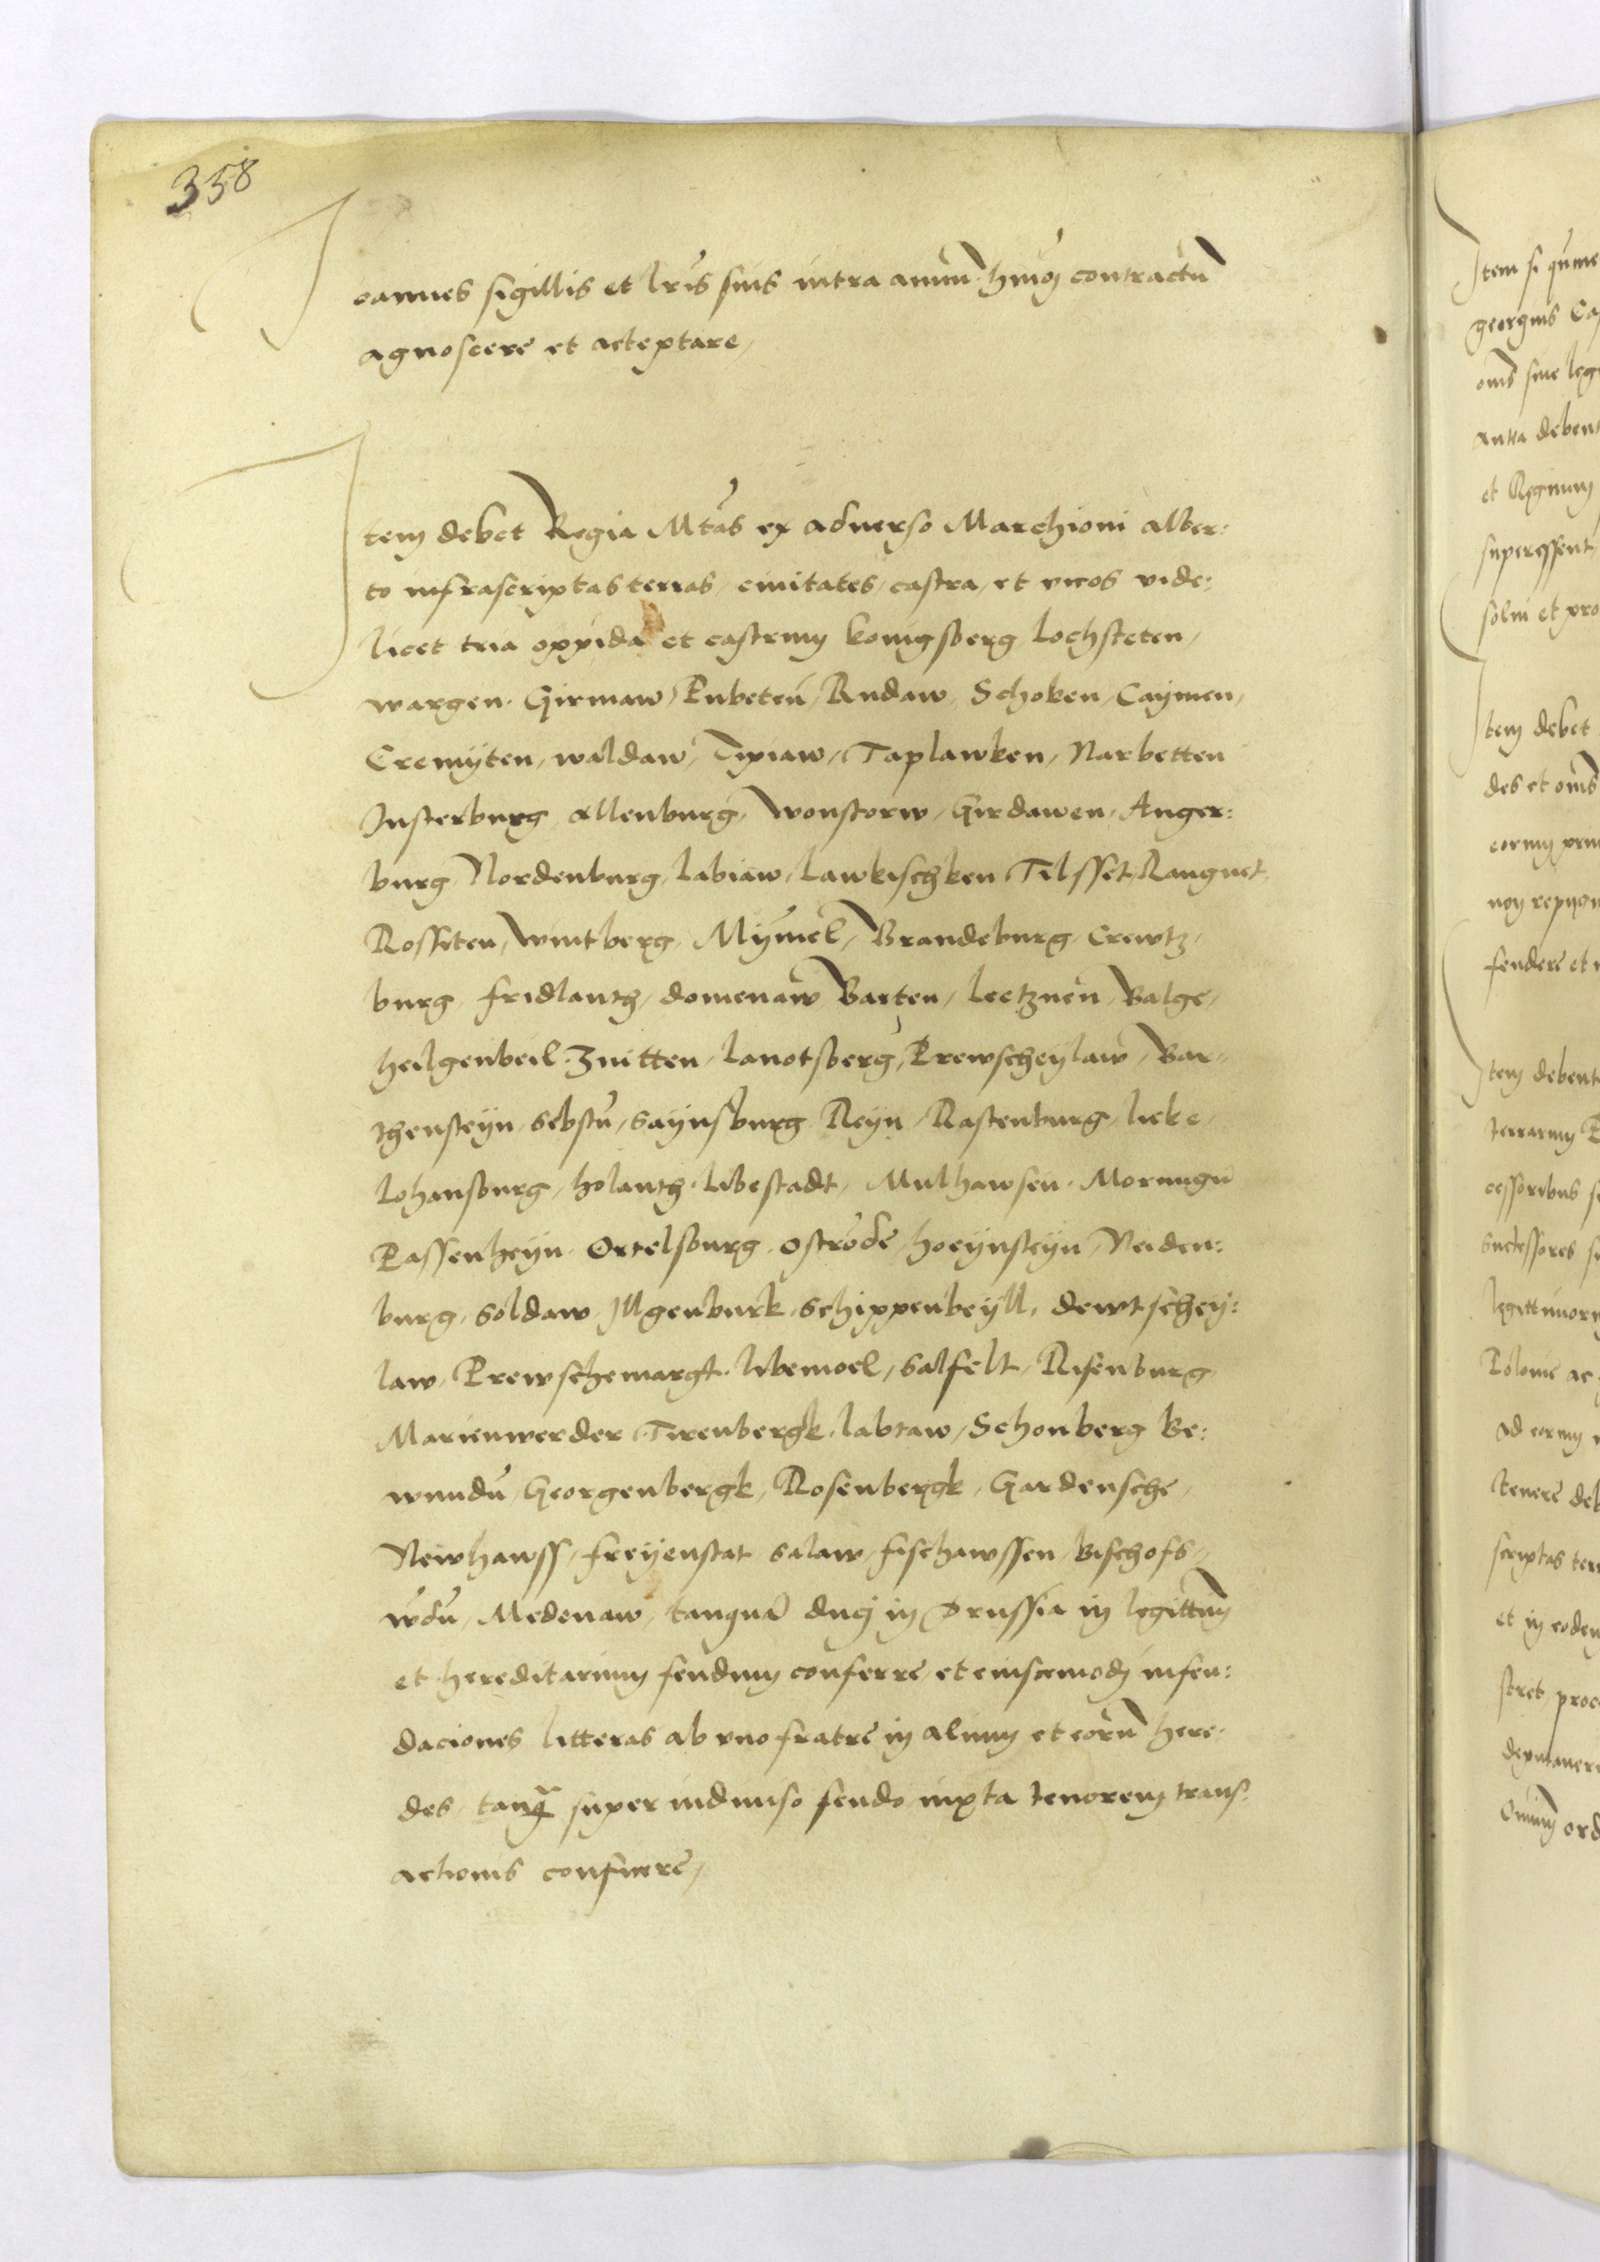 358
Joannes sigillis et lr̃is suis intra annũ huiꝰ contractũ
agnoscere et acceptare,
Item debet Regia Mtãs ex aduerso Marchioni alber:
to infrascriptas terras, ciuitates, castra, et vicos vide:
licet tria oppida et castrum konigsberg lochsteten,
wargen, Girmaw, Pubeten, Rudaw, Schoken, Caymen,
Cremyten, waldaw, Tipiaw, Taplawken, Narbetten
Insterburg, Allenburg, wonstorw, Girdawen, Anger:
burg, Nordenburg, labiaw, lawkischken, Tilsset, Rangnet,
Rossiten, wintberg, Mÿmel, Brandeburg, Crewtz,
burg, fridlantz, domenaw, Barten, letznen, Balge,
heilgenbeil, Zintten, lanotsberg, Prewscheylaw, Bar,
thensteyn, sebstũ, saynsburg, Reyn, Rastenburg, licke,
Johansburg, holantz, libestadt, Mulhawsen, Morungũ
Passenheyn, Ortelsburg, Ostrode, hoeynsteyn, Neiden:
burg, soldaw, Illgenburk, schippenbeyll, dewtschey:
law, Prewschemargt, libemoel, salfelt, Risenburg,
Marienwerder, Tirenbergk, labtaw, Schonberg Be:
wundũ, Georgenbergk, Rosenbergk, Gardensche,
Newhawss, freyenstat, salaw, fischawssen, Bischofs,
wdũ, Medenaw, tanquã duci in Prussia in legittimũ
et hereditarium feudum conferre, et eiuscemodi infeu:
daciones litteras ab vno fratre in alium et eorũ here,
des, tanq̃ super indiuiso feudo iuxta tenorem trans,
actionis conficere,
Item si
georgius
debent
et Regnum
superessent,
solui et pro
Item debet
des et om̃s
eorum
non repugn
fendere et
Item debent
terrarum
cessoribus
successores
legittimorũ
Polonie ac
ad eorum
tenere deb
scriptas terr
et in eodem
Omnium ord